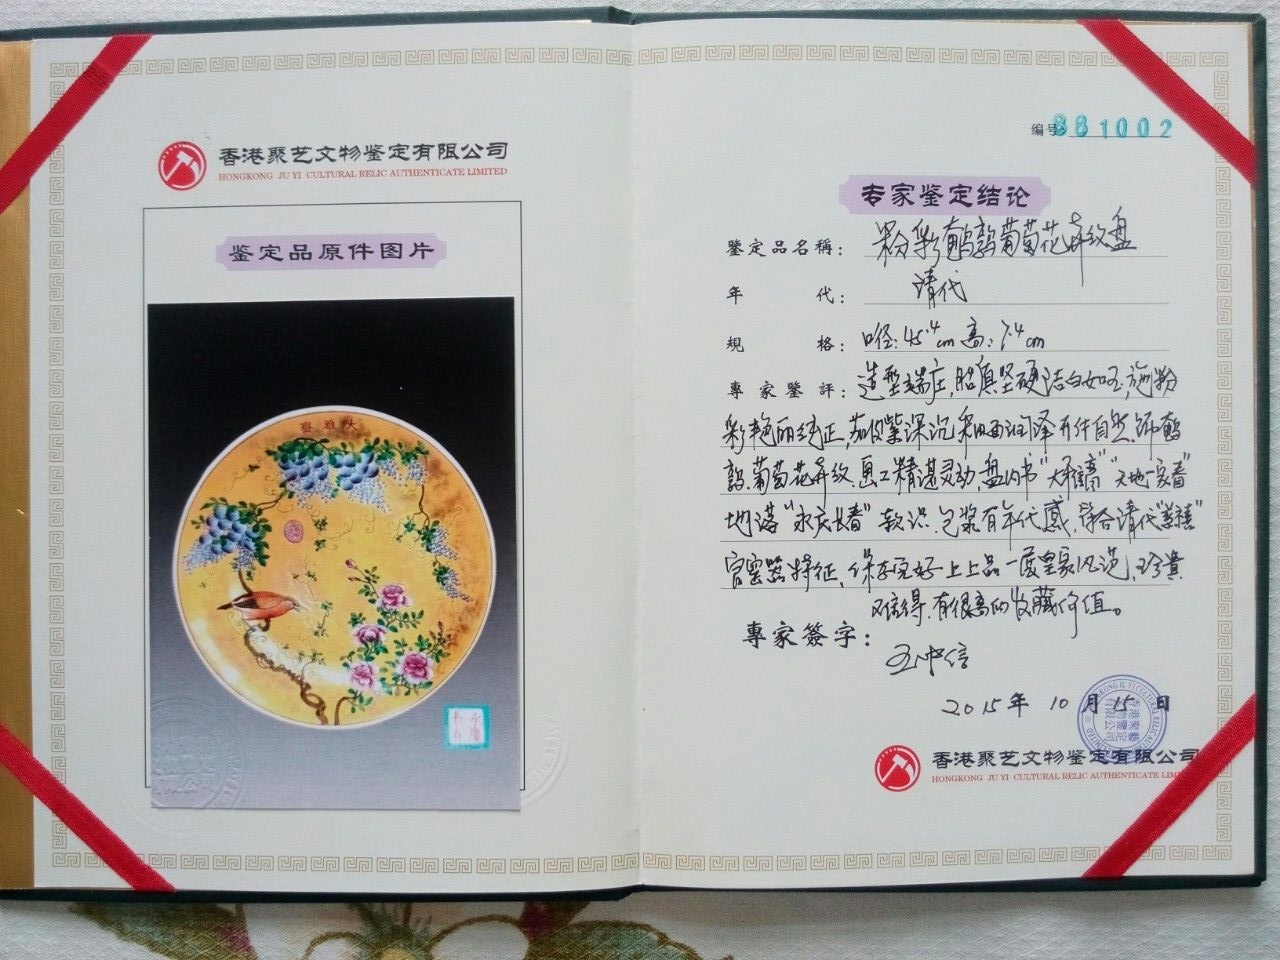 香港聚艺文物鉴定有限公司
HONGKONG JU YI CULTURAL RELIC AUTHENTICATE LIMITED
鉴定品原件图片
大雅齋
永慶長春
编号 881002
专家鉴定结论
鑒定品名稱：粉彩鹌鹑葡萄花卉纹盘
年 代：清代
規 格：口径：45.4cm 高：7.4cm
專家鑒評：造型端庄，胎真坚硬洁白如玉，施粉
彩艳丽纯正，茄皮紫深沉，釉面润泽开片自然，饰鹌
鹑、葡萄花卉纹，画工精湛灵动，盘内书"大雅斋""天地一家春"
地落"永庆长春"款识，包浆有年代感，符合清代"慈禧"
官窑器特征，保存完好上上品一度皇家风范，珍贵
难得，有很高的收藏价值。
專家簽字：
2015年 10月 15日
香港聚艺文物鉴定有限公司
HONGKONG JU YI CULTURAL RELIC AUTHENTICATE LIM